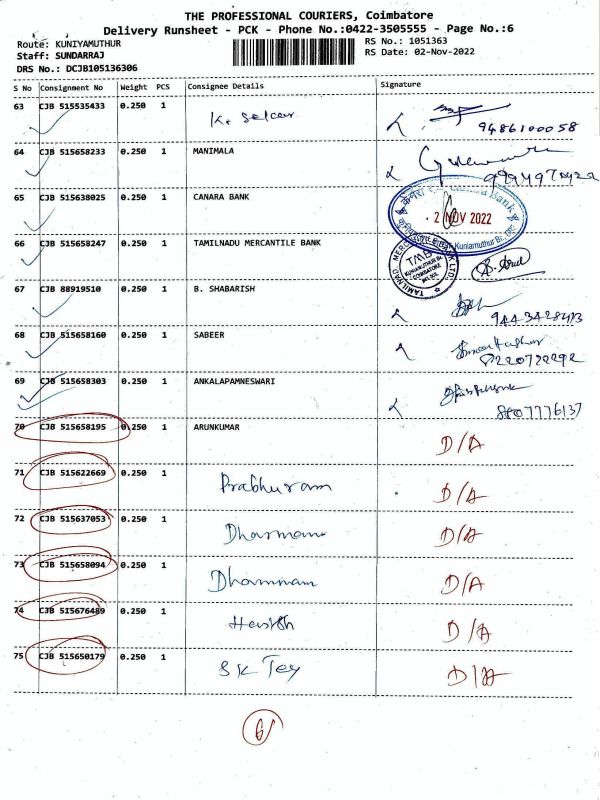 THE PROFESSIONAL COURIERS, Coimbatore
Delivery Runsheet - PCK - Phone No.:0422-3505555 - Page No.:6
Route: KUNIYAMUTHUR RS No.: 1051363
Staff: SUNDARRAJ RS Date: 02-Nov-2022
DRS No.: DCJB105136306
S No Consignment No Weight PCS Consignee Details Signature
63 CJB 515535433 0.250 1 K.
9486100058
64 CJB 515658233 0.250 1 MANIMALA
65 CJB 515638025 0.250 1 CANARA BANK
Canara Bank
- 2 NOV 2022
Kuniamuthur Br.
66 CJB 515658247 0.250 1 TAMILNADU MERCANTILE BANK
TAMILNAD MERCANTILE BANK LTD.
TMB
KUNIAMUTHUR BR.
COIMBATORE
67 CJB 88919510 0.250 1 B. SHABARISH
68 CJB 515658160 0.250 1 SABEER
8220722292
69 CJB 515658303 0.250 1 ANKALAPAMNESWARI
8807776137
70 CJB 515658195 0.250 1 ARUNKUMAR D/A
71 CJB 515622669 0.250 1 Prabhuram D/A
72 CJB 515637053 0.250 1 D/A
73 CJB 515658094 0.250 1 D/A
74 CJB 515676489 0.250 1 D/A
75 CJB 515650179 0.250 1 SK Tey D/A
6